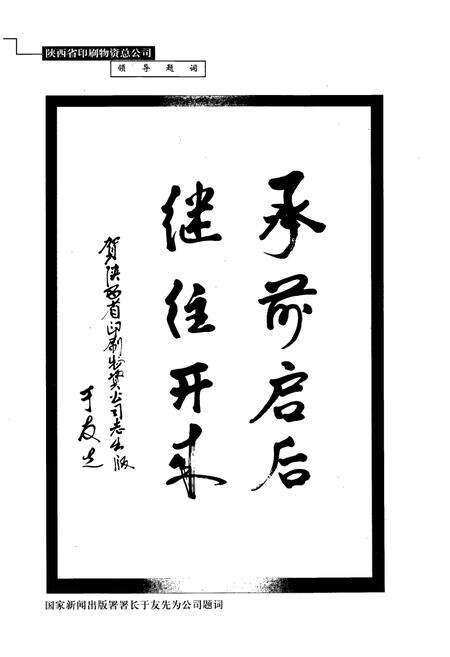 陕西省印刷物资总公司
领导题词
承前启后
继往开来
贺陕西省印刷物资公司志出版
于友先
国家新闻出版署署长于友先为公司题词